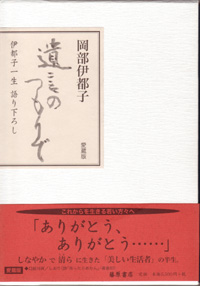 岡部伊都子
遺言の
つもりで
伊都子一生 語り下ろし
愛蔵版
これからを生きる若い方々へ
「ありがとう、
ありがとう……」
しなやかで清らに生きた「美しい生活者」の半生。
愛蔵版
藤原書店